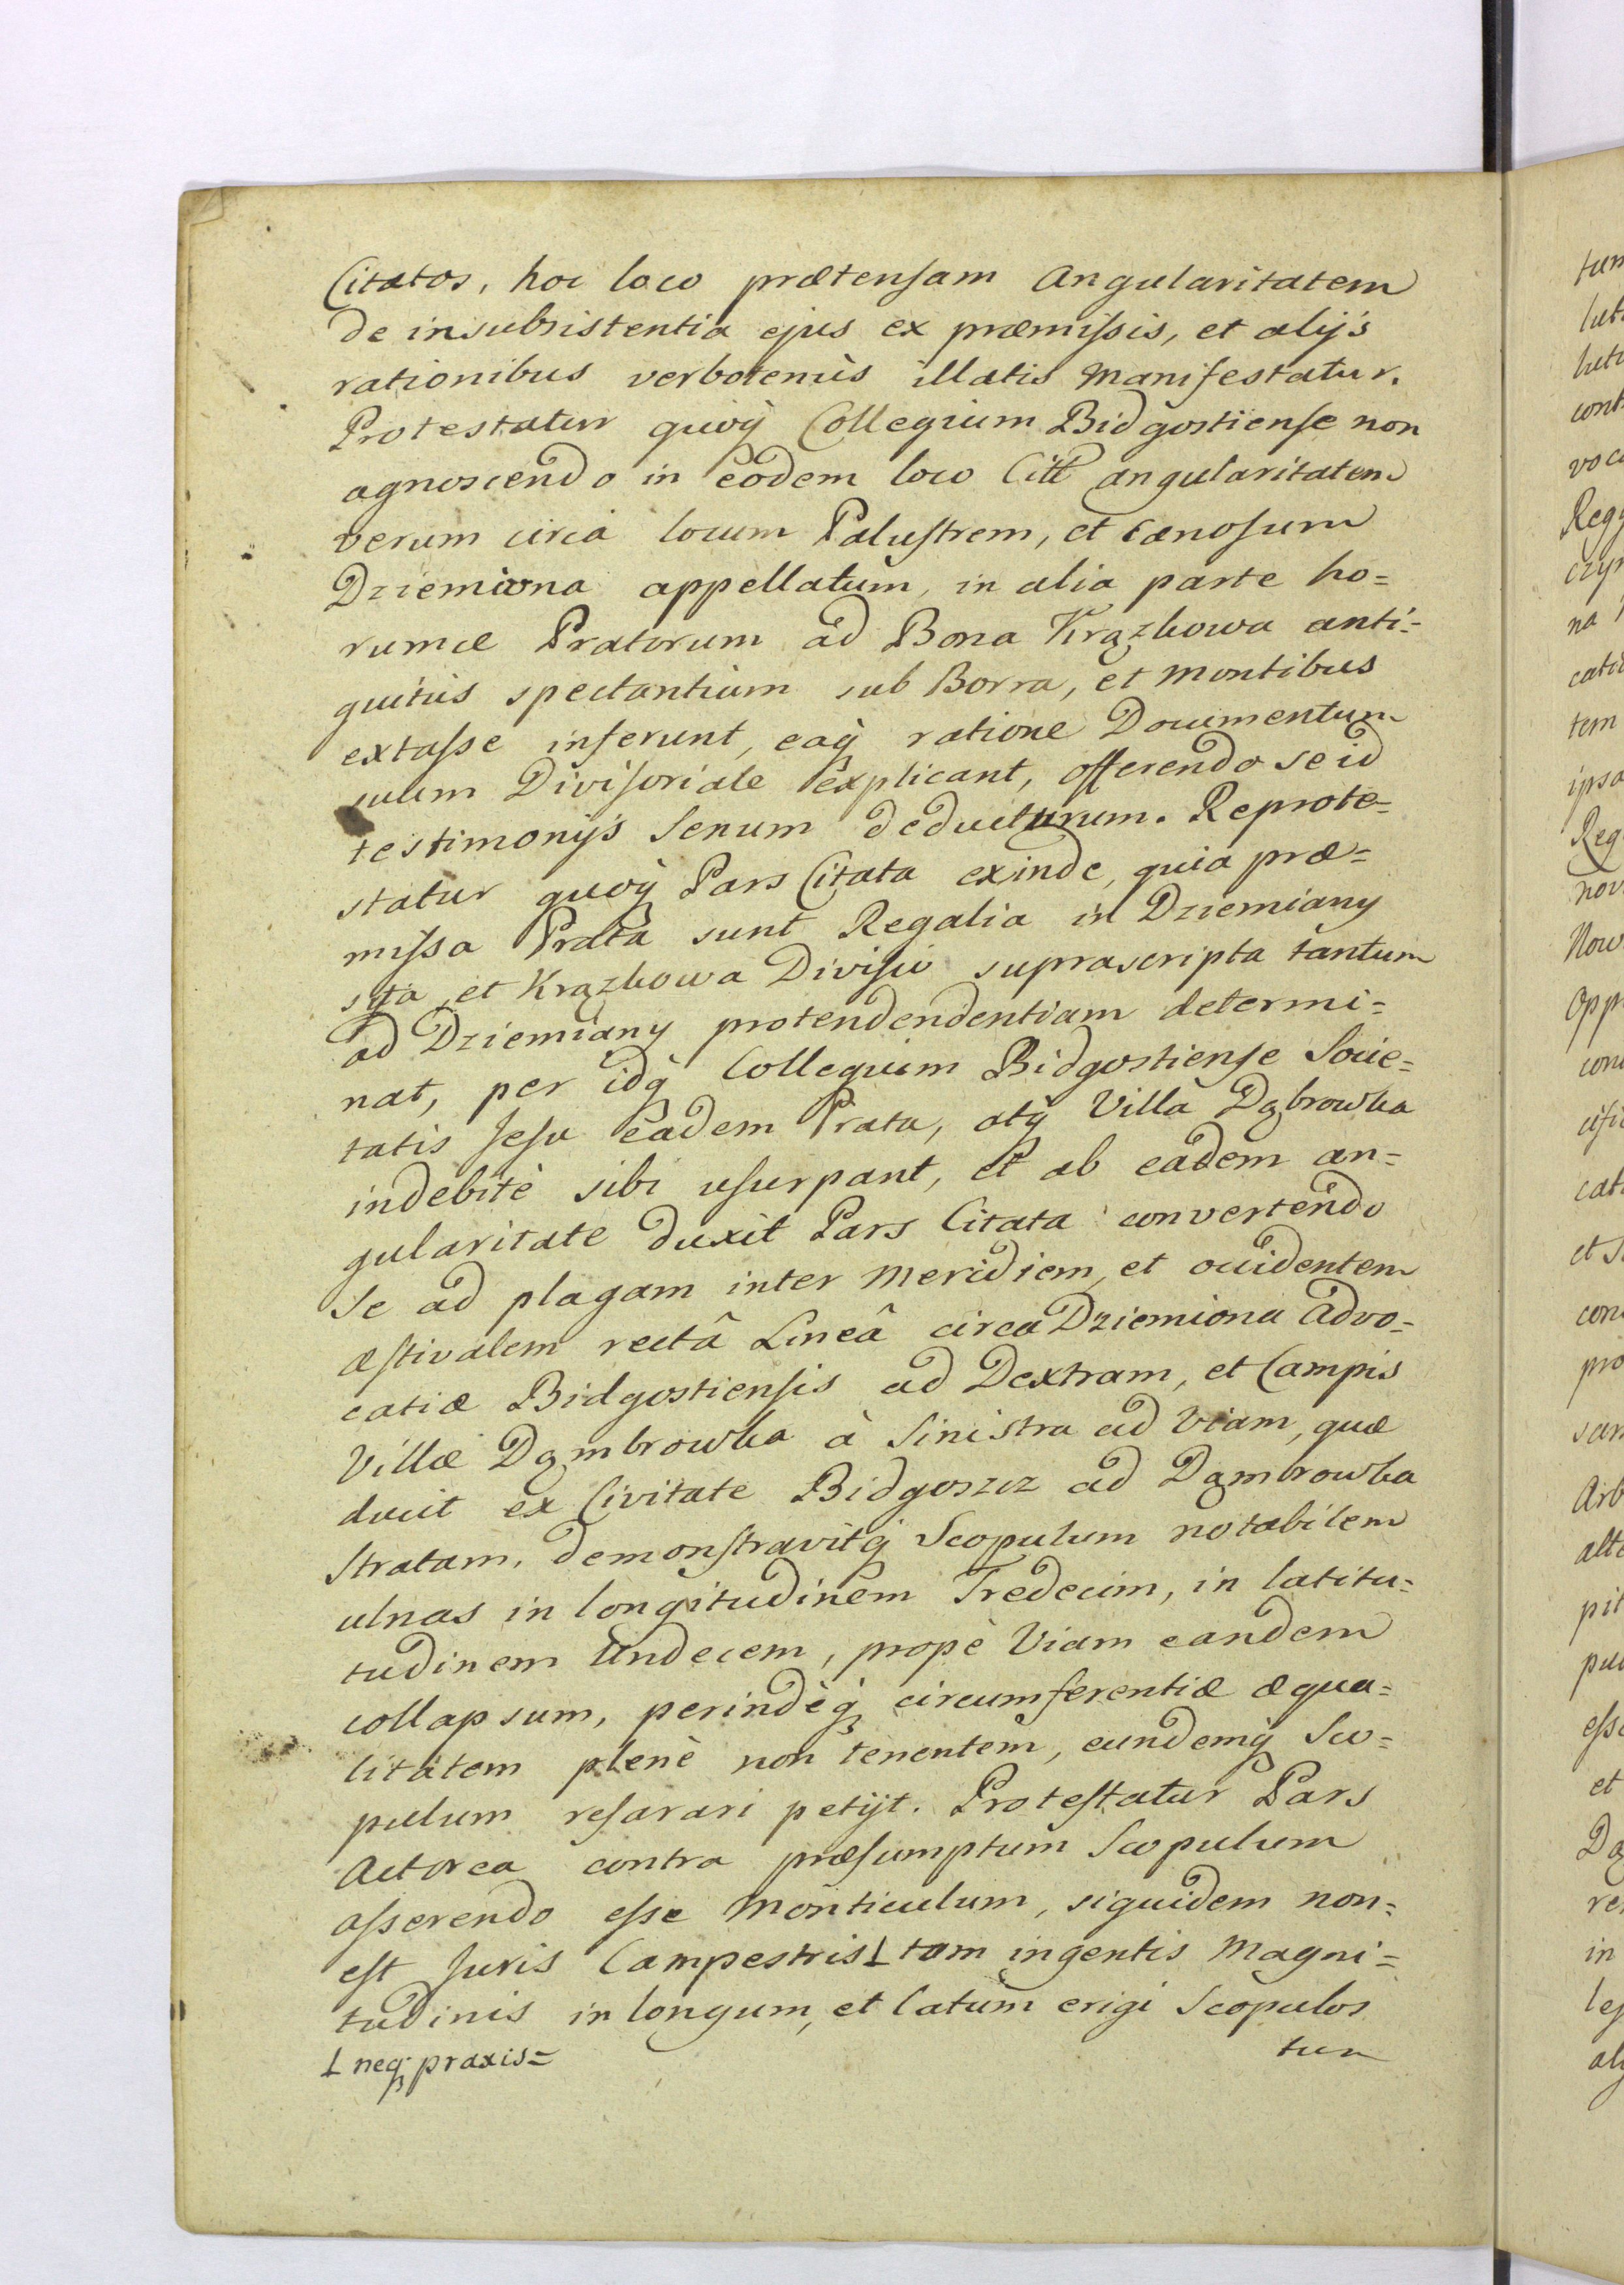 Citatos, hoc loco prætensam Angularitatem
de insubsistentia ejus ex præmissis, et alijs
rationibus verbotenùs illatis manifestatur.
Protestatur quoq̀ Collegium Bidgostiense non
agnoscendo in eodem loco Citt angularitatem
verum circa locum Palustrem, et cænosum
Dziemiona appellatum, in alia parte ho=
rumce Pratorum ad Bona Krązkowa anti=
quitùs spectantium sub Borra, et montibus
extasse inferunt, eaq̀ ratione Documentum
suum Divisoriale explicant, offerendo se id
testimonijs Senum deducturum. Reprote=
statur quoq̀ Pars Citata exinde, quia præ=
missa Prata sunt Regalia in Dziemiany
sita, et Krązkowa Divisio suprascripta tantum
ad Dziemiany protendendentiam determi=
nat, per idq̀ Collegium Bidgostiense Socie=
tatis Jesu eadem Prata, atq̀ Villa Dąbrowka
indebitè sibi usurpant, et ab eadem an=
gularitate duxit Pars Citata convertendo
se ad plagam inter meridiem, et occidentem
æstivalem rectâ Lineâ circa Dziemiona Advo=
catiæ Bidgostiensis ad Dextram, et Campis
Villæ Dąmbrowka à Sinistra ad Viam, quæ
ducit ex Civitate Bidgoszcz ad Dąmbrowka
Stratam, demonstravitq̀ Scopulum notabilem
ulnas in longitudinem Tredecim, in latitu=
tudinem Undecem, propè Viam eandem
collapsum, perindèq̀ circumferentiæ æqua=
litatem plenè non tenentem, eundemq̀ Sco=
pulum resarari petijt. Protestatur Pars
Actorea contra præsumptum Scopulum
asserendo esse Monticulum, siquidem non=
est Juris Campestris ⊥ tam ingentis Magni=
tudinis in longum, et latum erigi Scopulos
⊥ neq̀ praxis=
tum